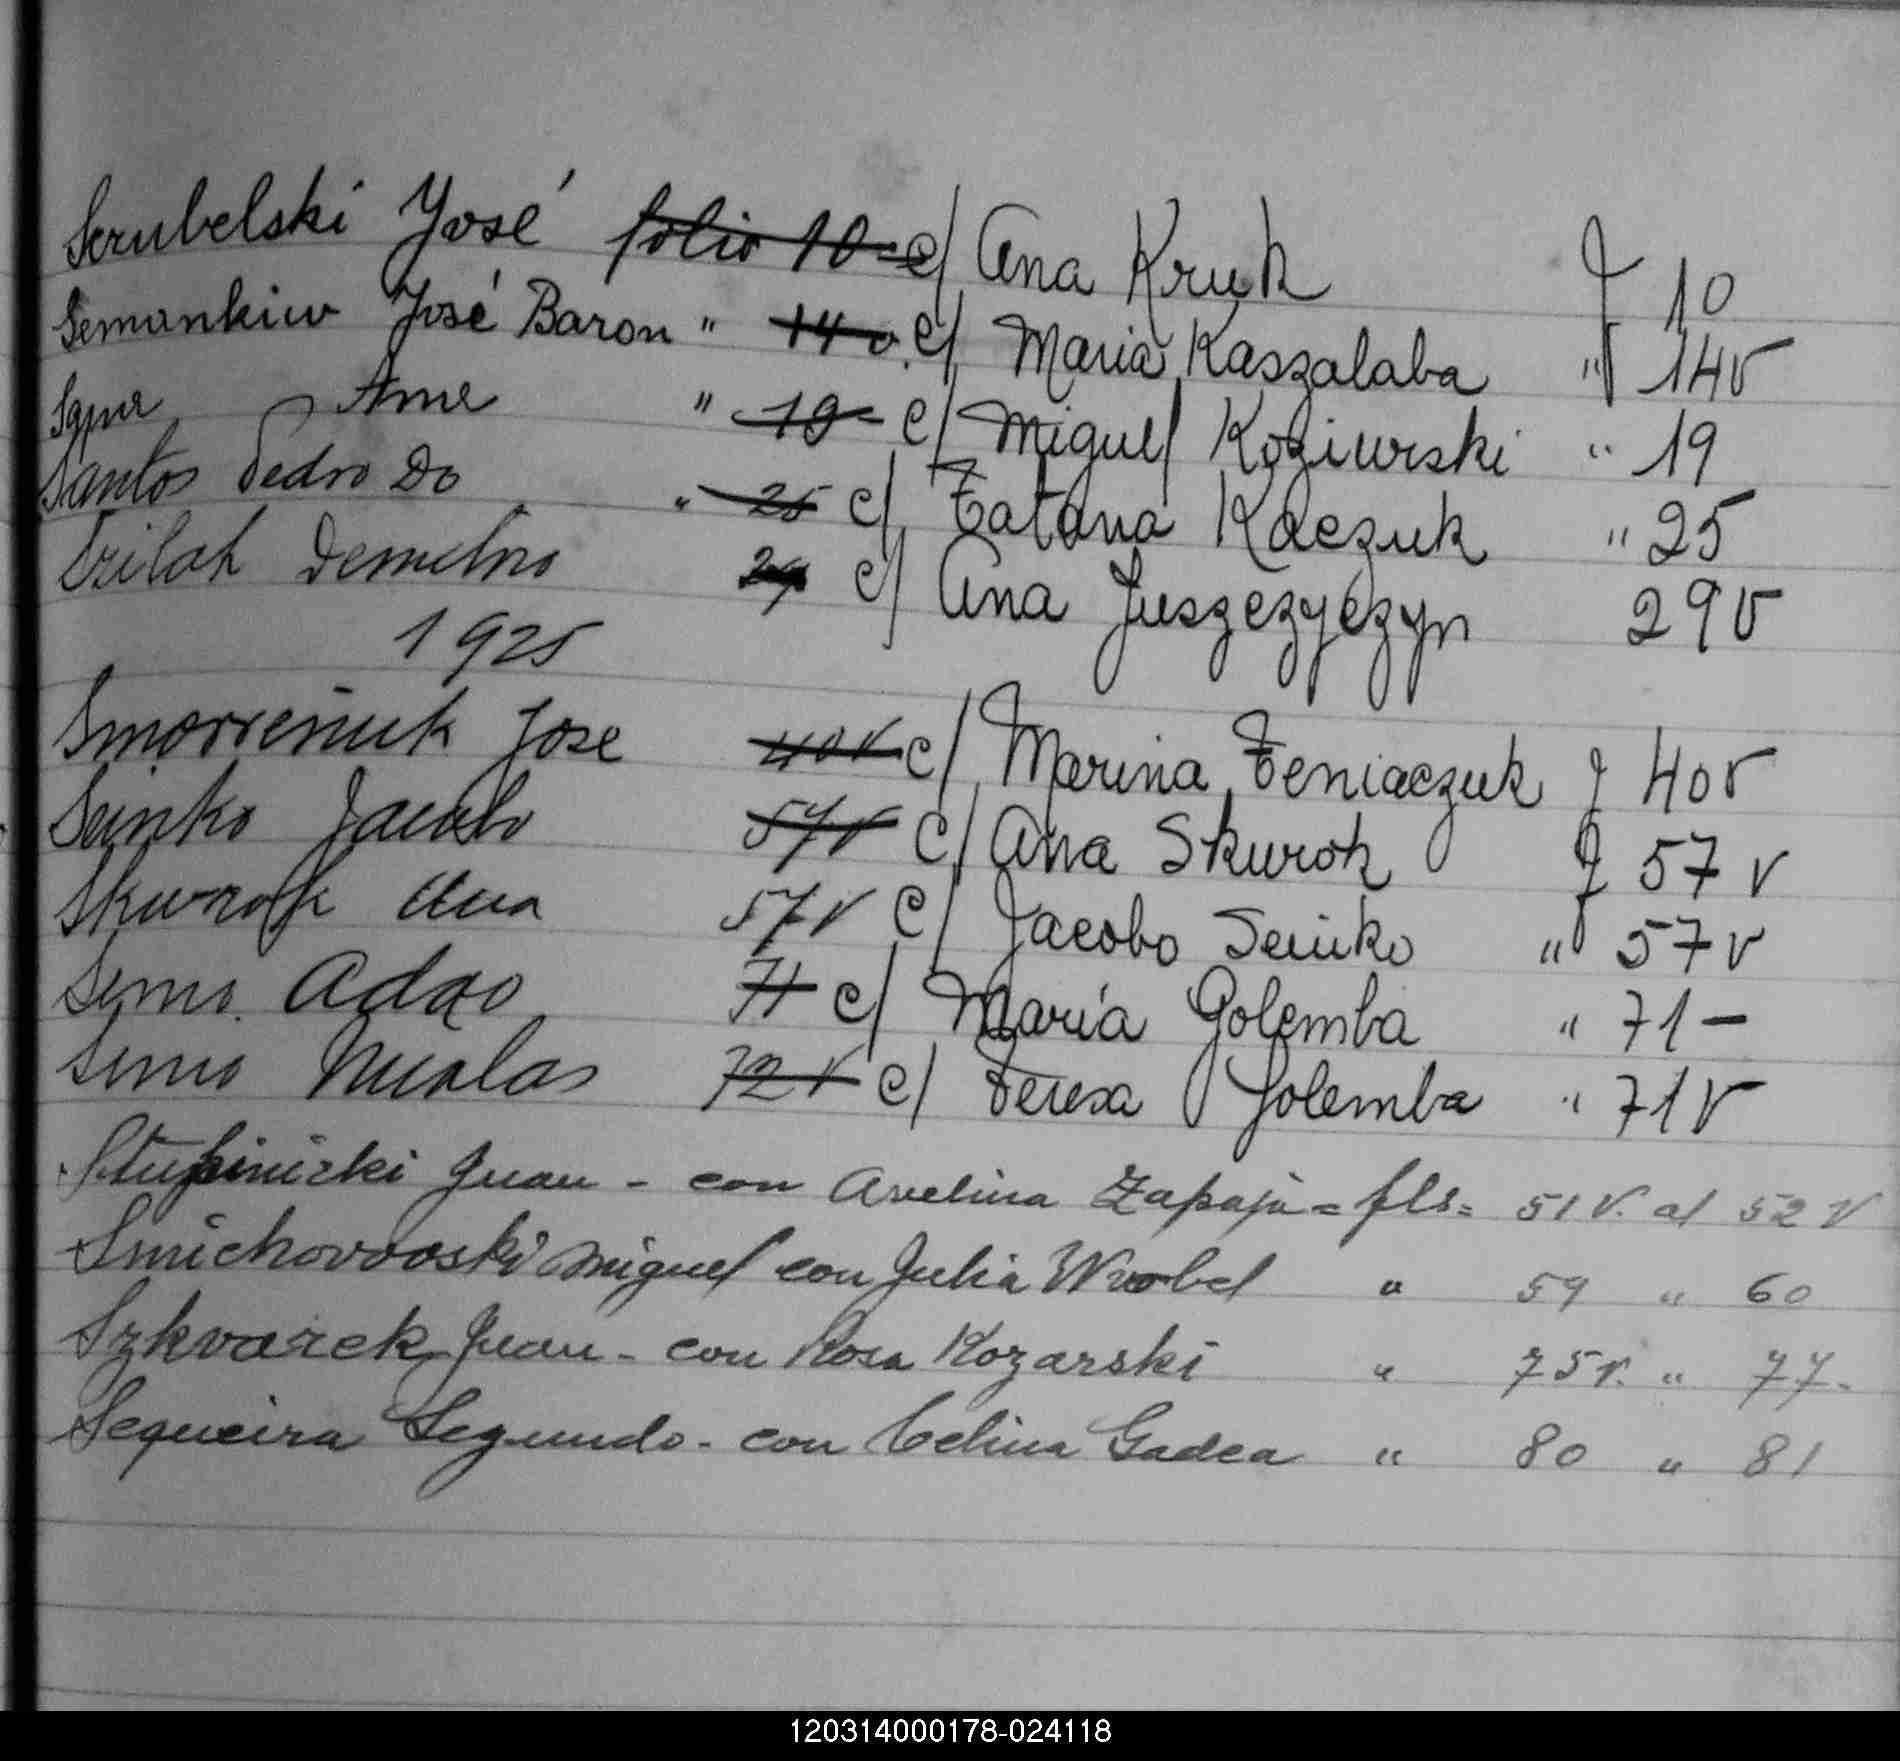 Scrubelski José folio 10 c/ Ana Kruk f 10
Semankiw José Baron " 14 v c/ Maria Kaszalaba " 14v
Ana " 19 c/ Miguel Koziurski " 19
Santos Pedro Do " 25 c/ Tatana Kaczuk " 25
Demetrio 29 c/ Ana Juszczyczyn 29v
1925
José 40v c/ Marina Feniaczuk f 40v
Seinko Jacobo 57v c/ Ana Skurok f 57 v
Skurok Ana 57v c/ Jacobo Seinko " 57v
Semo Adao 71 c/ María Golemba " 71 -
Semo Nicolas 72v c/ Teresa Golemba " 71v
Stupinicki Juan - con Avelina Zapaja = fls = 51 v. al 52 v
Smichowoski Miguel con Julia Wrobel " 59 " 60
Szkvarek Juan - con Rosa Kozarski " 75v. " 77.
Sequeira Segundo - con Celina Gadea " 80 " 81
120314000178-024118